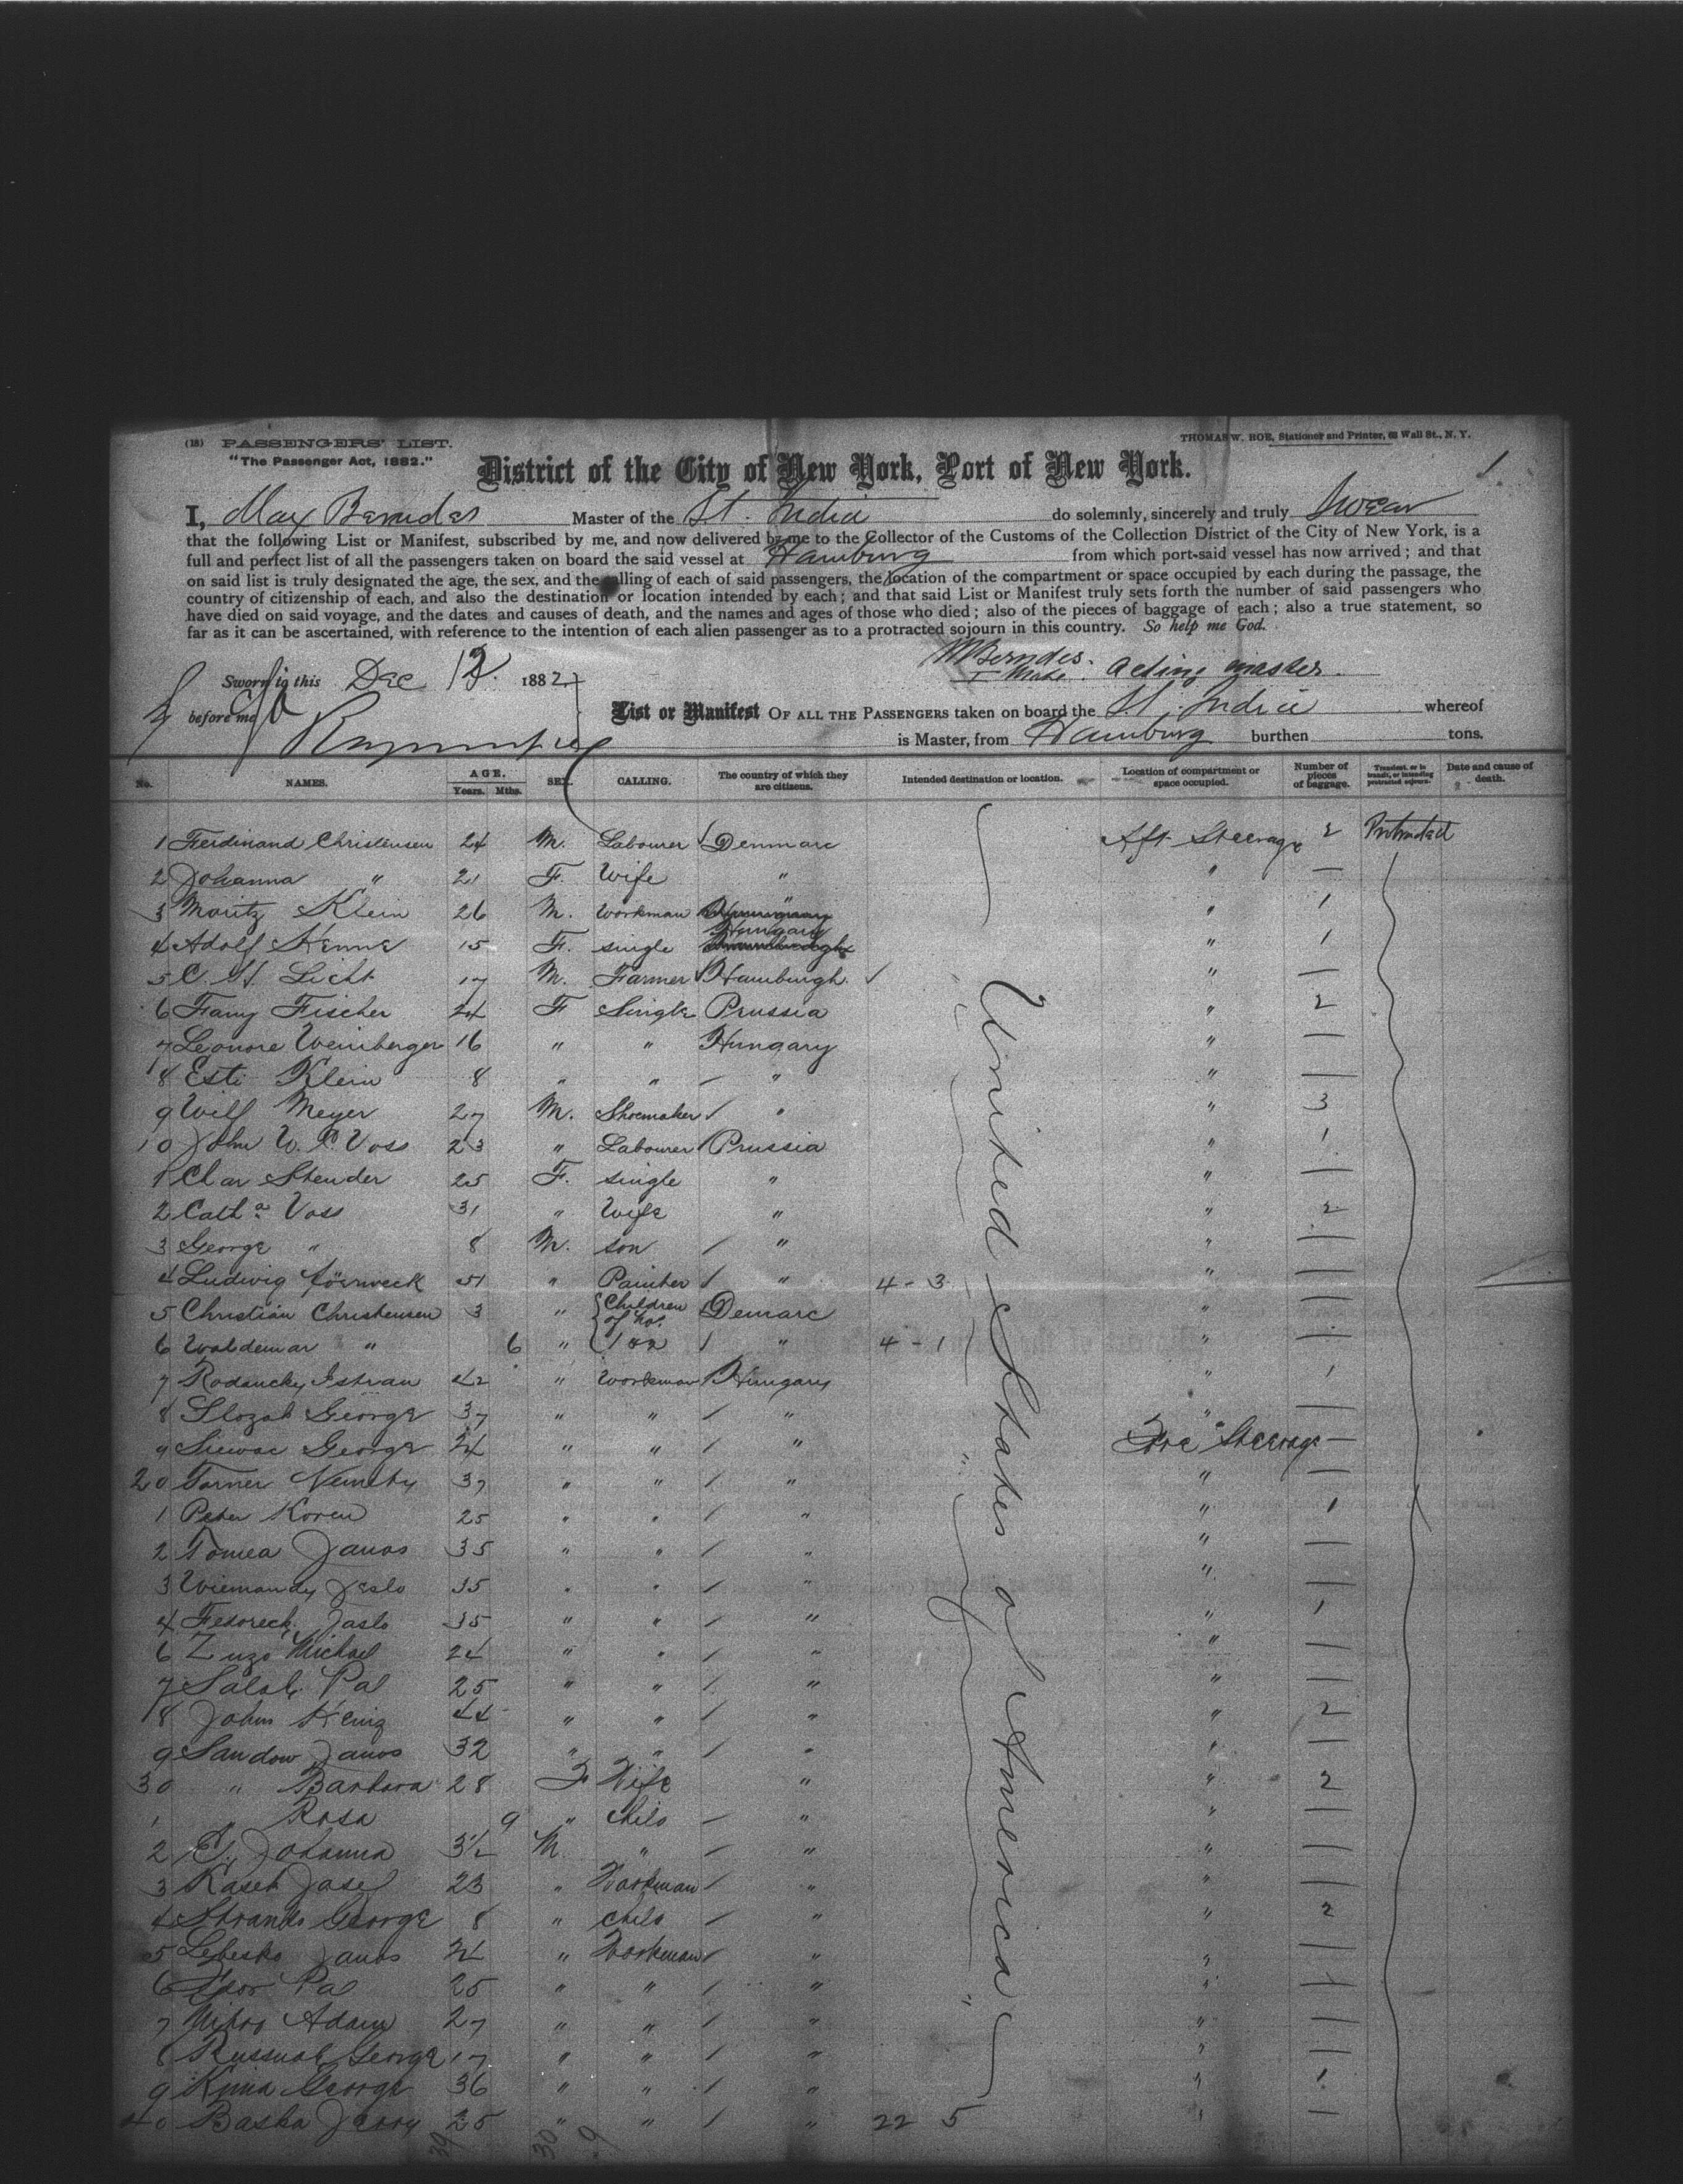 (18) PASSENGERS' LIST.
THOMAS W. ROE, Stationer and Printer, 68 Wall St., N. Y.
"The Passenger Act, 1882."
1
District of the City of New York, Port of New York.
I, Max Berndes Master of the St. India do solemnly, sincerely and truly Swear
that the following List or Manifest, subscribed by me, and now delivered by me to the Collector of the Customs of the Collection District of the City of New York, is a
full and perfect list of all the passengers taken on board the said vessel at Hamburg from which port said vessel has now arrived; and that
on said list is truly designated the age, the sex, and the calling of each of said passengers, the location of the compartment or space occupied by each during the passage, the
country of citizenship of each, and also the destination or location intended by each; and that said List or Manifest truly sets forth the number of said passengers who
have died on said voyage, and the dates and causes of death, and the names and ages of those who died; also of the pieces of baggage of each; also a true statement, so
far as it can be ascertained, with reference to the intention of each alien passenger as to a protracted sojourn in this country. So help me God.
MBerndes.
Sworn to this Dec 12. 1882
1 Mate. acting master.
before me
List or Manifest OF ALL THE PASSENGERS taken on board the St. India whereof
is Master, from Hamburg burthen tons.
No. NAMES. AGE. Years. Mths. SEX. CALLING. The country of which they are citizens. Intended destination or location. Location of compartment or space occupied. Number of pieces of baggage. Transient, or in transit, or intending protracted sojourn. Date and cause of death.
United States of America
1 Ferdinand Christensen 24 M. Labourer Denmarc Aft Steerage 2 Protracted
2 Johanna " 21 F. Wife " " —
3 Moritz Klein 26 M. workman " 1
4 Adolf 15 F. single Hungary " 1
5 C. H. Licht 17 M. Farmer Hamburgh " —
6 Fany Fischer 24 F Single Prussia " 2
7 Leonore Weinberger 16 " " Hungary " —
8 Esti Klein 8 " " " " —
9 Will Meyer 27 M. Shoemaker " " 3
10 John W. Voss 23 " Labourer Prussia " 1
1 Clar Stender 25 F. single " " —
2 Cath a Voss 31 " Wife " " 2
3 George " 8 M. son " " —
4 Ludwig 51 " Painter " 4 - 3 " —
5 Christian Christensen 3 " Children of No. Demarc " —
6 Waldemar " 6 " 1 & 2 " 4 - 1 " —
7 Rodancky Istvan 42 " workman Hungary " 1
8 Slozak George 37 " " " " —
9 George 24 " " " Fore Steerage —
20 Torner 37 " " " " —
1 Peter Koren 25 " " " " 1
2 Tomea Janos 35 " " " " —
3 35 " " " " —
4 35 " " " " 1
6 Michael 24 " " " " —
7 Pal 25 " " " " —
8 John 44 " " " " 2
9 Sandow Janos 32 " " " " —
30 " Barbara 28 F Wife " " 2
1 Rosa 9 " child " " —
2 Johanna 3½ M. " " " —
3 23 " Workman " " —
4 George 8 " child " " 2
5 Janos 24 " Workman " " —
6 Pal 25 " " " " —
7 Adam 27 " " " " —
8 George 17 " " " " —
9 Kima George 36 " " " " 1
40 Baska 25 " " " 22 5 " —
39 30 9